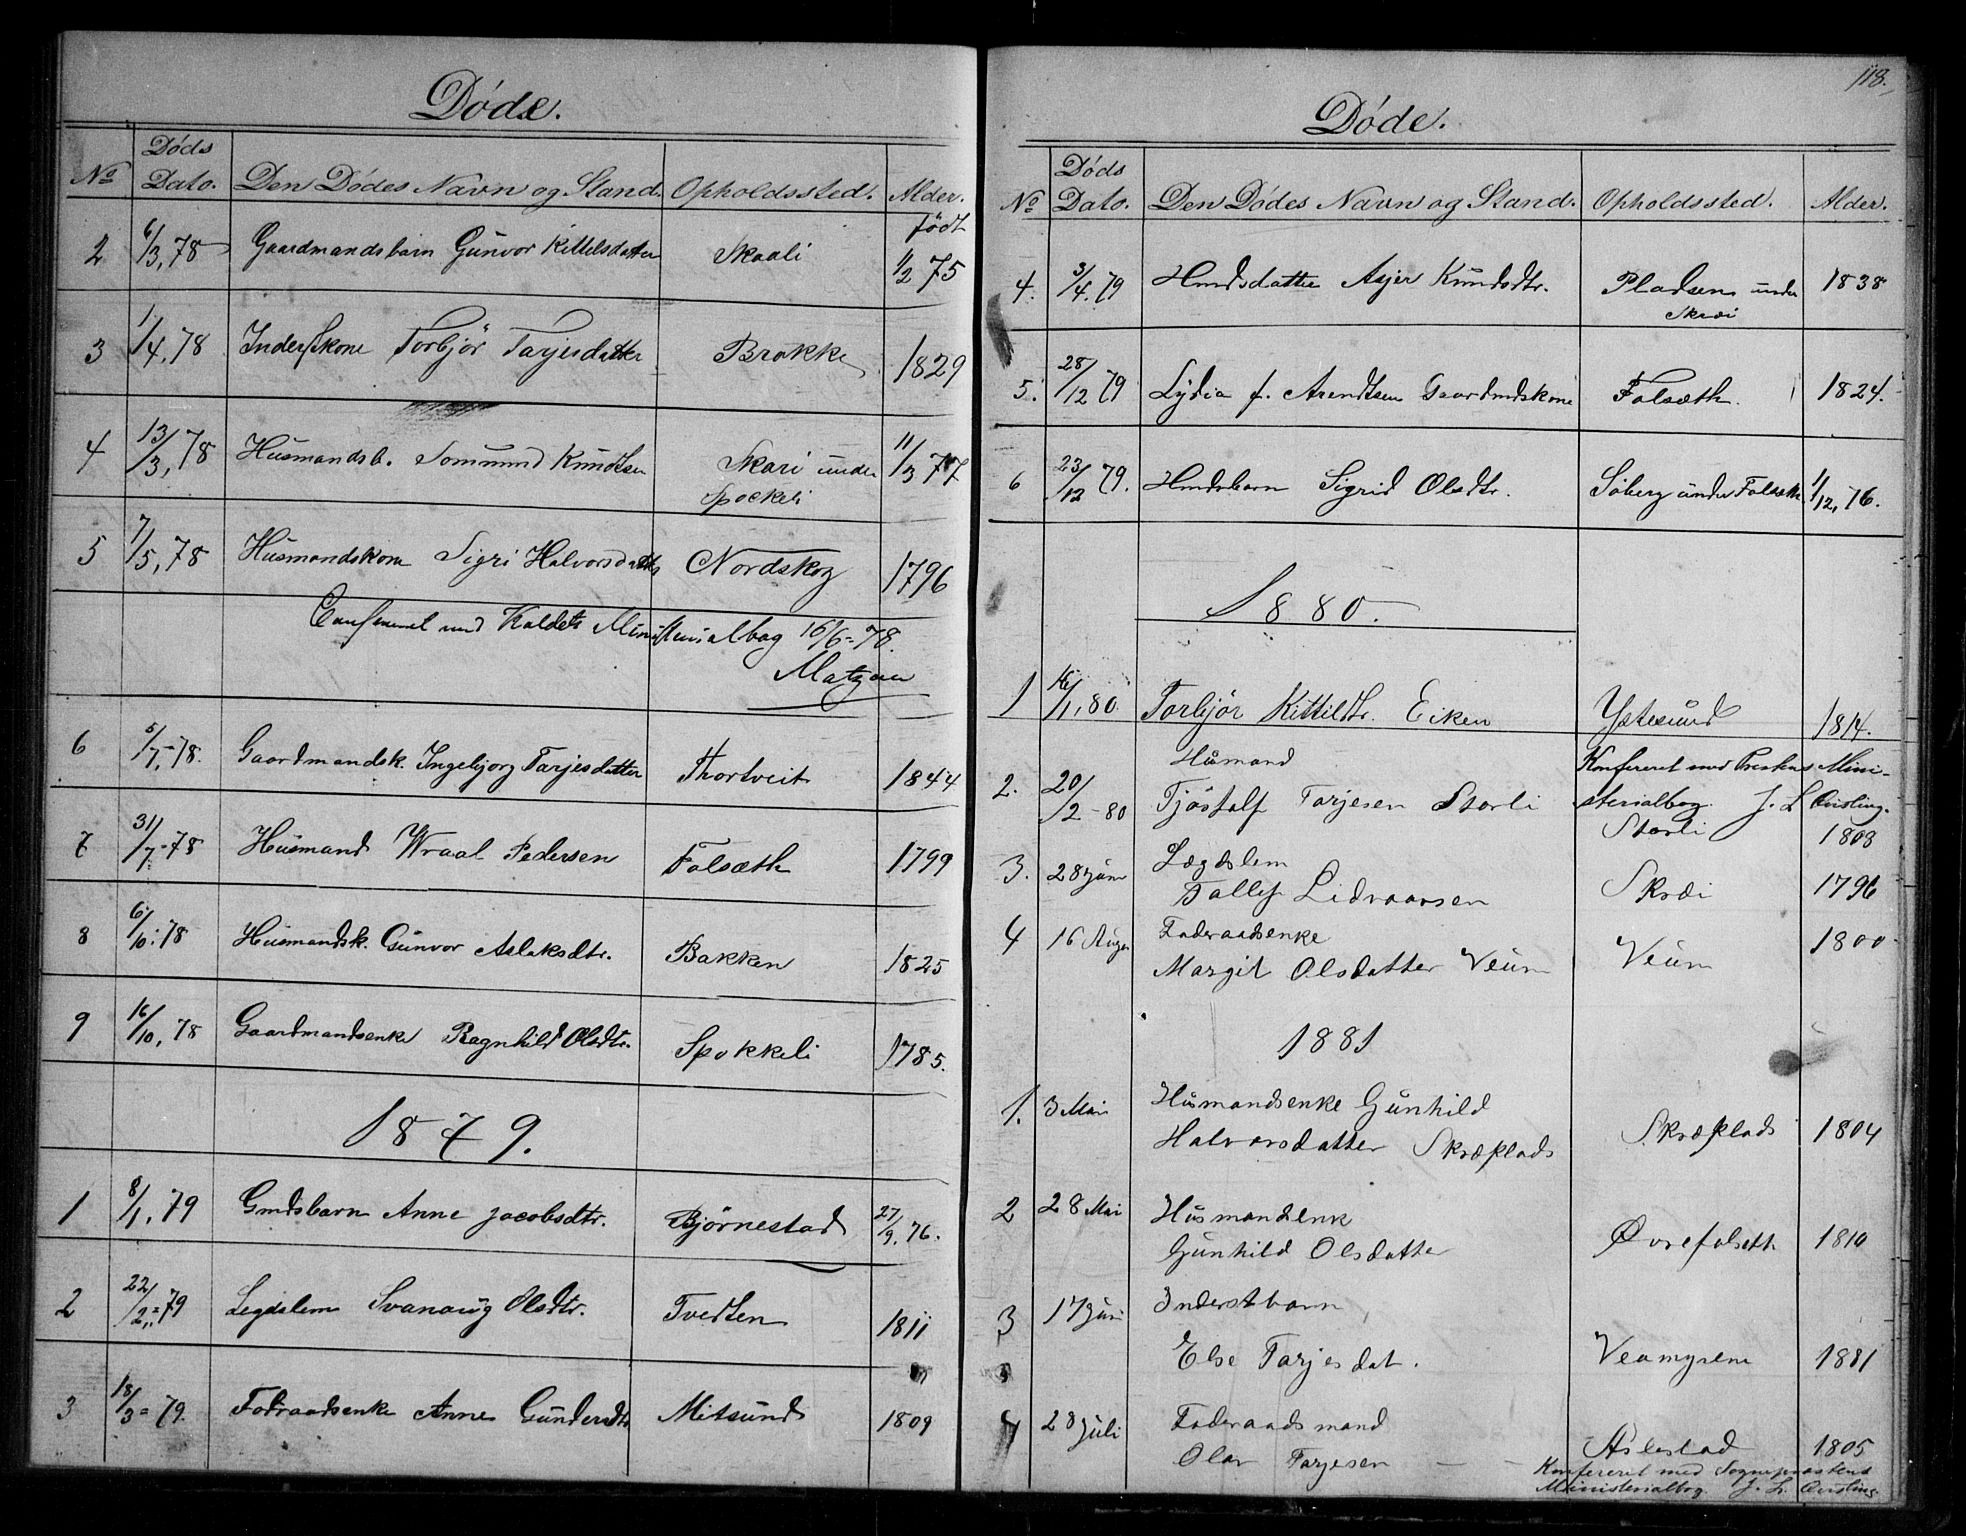 Døde.
No Døds Dato. Den Dødes Navn og Stand. Opholdssted. Alder.
født
2 6/3, 78 Gaardmandsbarn Gunvor Kittelsdatter Skaali 1/2 75
3 1/4, 78 Inderstkone Torbjør Tarjesdatter Brokke 1829
4 13/3, 78 Husmandsb. Somund Knudsen Skari under 11/3 77
Spockeli
5 7/5, 78 Husmandskone Sigri Halvorsdatter Nordskog 1796
Confereret med Kaldets Ministerialbog 16/6=78.
Matzau
6 5/7-78. Gaardmandsk. Ingebjorg Tarjesdatter Thortveit 1844
7 31/7-78 Husmand Wraal Pedersen Folsæth 1799
8 6/10.78 Husmandsk. Gunvor Aslaksdtr. Bakken 1825
9 16/10, 78 Gaardmandsenke Ragnhild Olsdtr. Spokkeli 1785.
1879.
1 8/1, 79 Gmdsbarn Anne Jacobsdtr. Bjørnestad 27/9. 76.
2 22/2=79 Legdslem Svanaug Olsdtr. Tvedten 1811
3 18/3=79. Fodraadsenke Anne Gundersdtr Mitsund 1809
118.
Døde.
No Døds Dato. Den Dødes Navn og Stand. Opholdssted. Alder.
4. 3/4. 79 Hmdsdatter Asjer Knudsdtr. Pladsen under 1838
Skrei
5. 28/12 79 Lydia f. Arendtsen Gaardmdskone Folsæth. 1824.
6 23/12 79. Hmdsbarn Sigrid Olsdtr. Søberg under Folseth 1/12, 76.
1880.
1 16/1, 80 Torbjør Kittildtr. Eiken Ystesund 1814.
Husmand Konfereret med Prestens Mini-
2. 20/2-80 Tjøstolf Tarjesen Storli sterialbog. J. L. Qvisling.
Storli 1808
3. 28 Juni Lægdslem
Tallef Lidvaarsen Skrei 1796
4 16 Augu Foderaadsenke
Margit Olsdatter Veum Veum 1800
1881
1. 3 Mai Husmandsenke Gunhild
Halvorsdatter Skreplads Skreplads 1804
2 28 Mai Husmandenk
Gunhild Olsdatter Øvrefolseth 1810
3 17 Juni Inderstbarn
Else Tarjesdat. Veamyrene 1881
4 28 Juli Foderaadsmand
Olav Tarjesen — — Aslestad 1805
Konfereret med Sogneprestens
Ministerialbog J. L. Qvisling